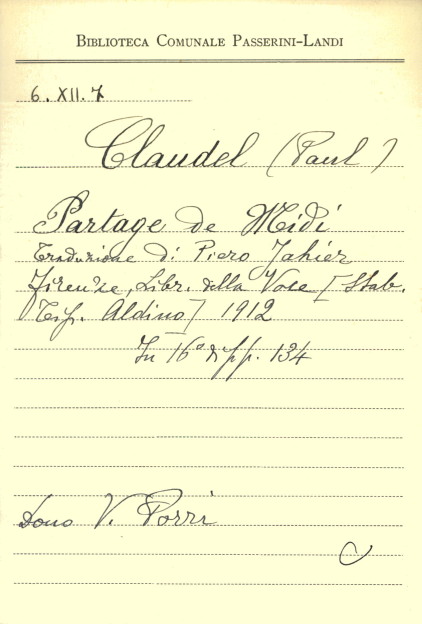 BIBLIOTECA COMUNALE PASSERINI-LANDI
6. XII. 7
Claudel (Paul)
Partage de Midi
Traduzione di Piero Jahier
Firenze, Libr. della Voce [Stab.
Tip. Aldino] 1912
In 16° di pp. 134
Dono V. Porri
C